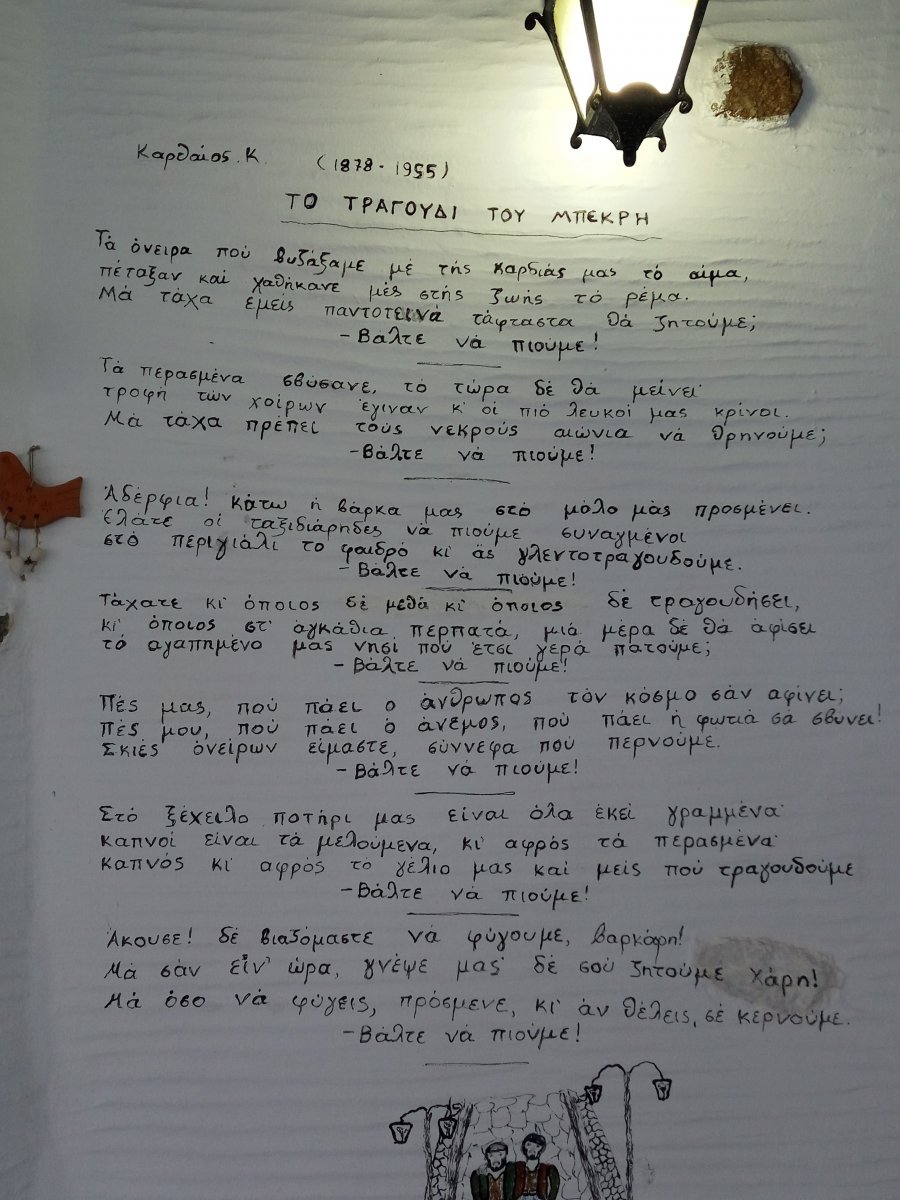 Καρθαίος Κ. (1878 - 1955)
ΤΟ ΤΡΑΓΟΥΔΙ ΤΟΥ ΜΠΕΚΡΗ
Τά όνειρα πού βυζάξαμε μέ τής καρδιάς μας τό αίμα,
πέταξαν καί χαθήκανε μές στής ζωής τό ρέμα.
Μά τάχα εμείς παντοτεινά τάφταστα θά ζητούμε;
- Βάλτε νά πιούμε!
Τά περασμένα σβύσανε, τό τώρα δέ θά μείνει·
τροφή τών χοίρων έγιναν κ' οί πιό λευκοί μας κρίνοι.
Μά τάχα πρέπει τούς νεκρούς αιώνια νά θρηνούμε;
- Βάλτε νά πιούμε!
Αδέρφια! κάτω ή βάρκα μας στό μόλο μάς προσμένει.
Ελάτε οί ταξιδιάρηδες νά πιούμε συναγμένοι
στό περιγιάλι το φαιδρό κι' άς γλεντοτραγουδούμε.
- Βάλτε νά πιούμε!
Τάχατε κι' όποιος δέ μεθά κι' όποιος δέ τραγουδήσει,
κι' όποιος στ' άγκάθια περπατά, μιά μέρα δέ θά άφίσει
τό αγαπημένο μας νησί πού έτσι γερά πατούμε;
- Βάλτε νά πιούμε!
Πές μας, πού πάει ο άνθρωπος τόν κόσμο σάν αφίνει;
Πές μου, πού πάει ό άνεμος, πού πάει ή φωτιά σά σβύνει!
Σκιές όνείρων είμαστε, σύννεφα πού περνούμε.
- Βάλτε νά πιούμε!
Στό ξέχειλο ποτήρι μας είναι όλα έκεί γραμμένα·
καπνοί είναι τά μελούμενα, κι' αφρός τά περασμένα·
καπνός κι' αφρός τό γέλιο μας καί μείς πού τραγουδούμε
- Βάλτε νά πιούμε!
Άκουσε! δέ βιαζόμαστε νά φύγουμε, βαρκάρη!
Μά σάν είν' ώρα, γνέψε μας· δέ σού ζητούμε χάρη!
Μά όσο νά φύγεις, πρόσμενε, κι' άν θέλεις, σέ κερνούμε.
- Βάλτε νά πιούμε!